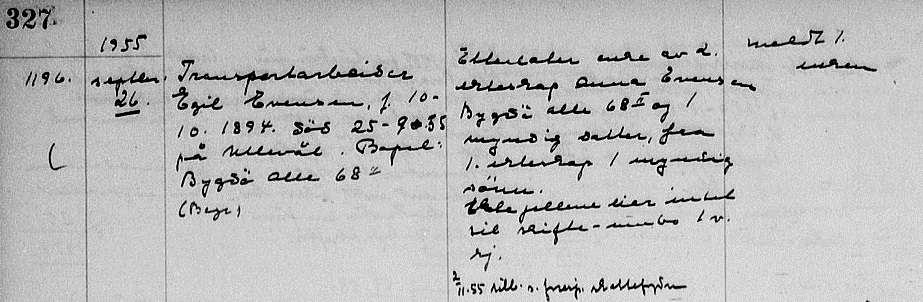 327
1955
1196.
septbr.
26.
Transportarbeider
Egil Evensen, f. 10-
10. 1894. Död 25-9-55
på Ullevål. Bopel:
Bygdö alle 68 II
(Byr)
Etterlater enke av 2.
ekteskap Anna Evensen
Bygdö alle 68 II og 1
myndig datter, fra
1. ekteskap 1 myndig
sönn.
eier intet
til skifte - innbo 1 v.
rj.
2/11.55 skattefogden
meldt 1.
enken